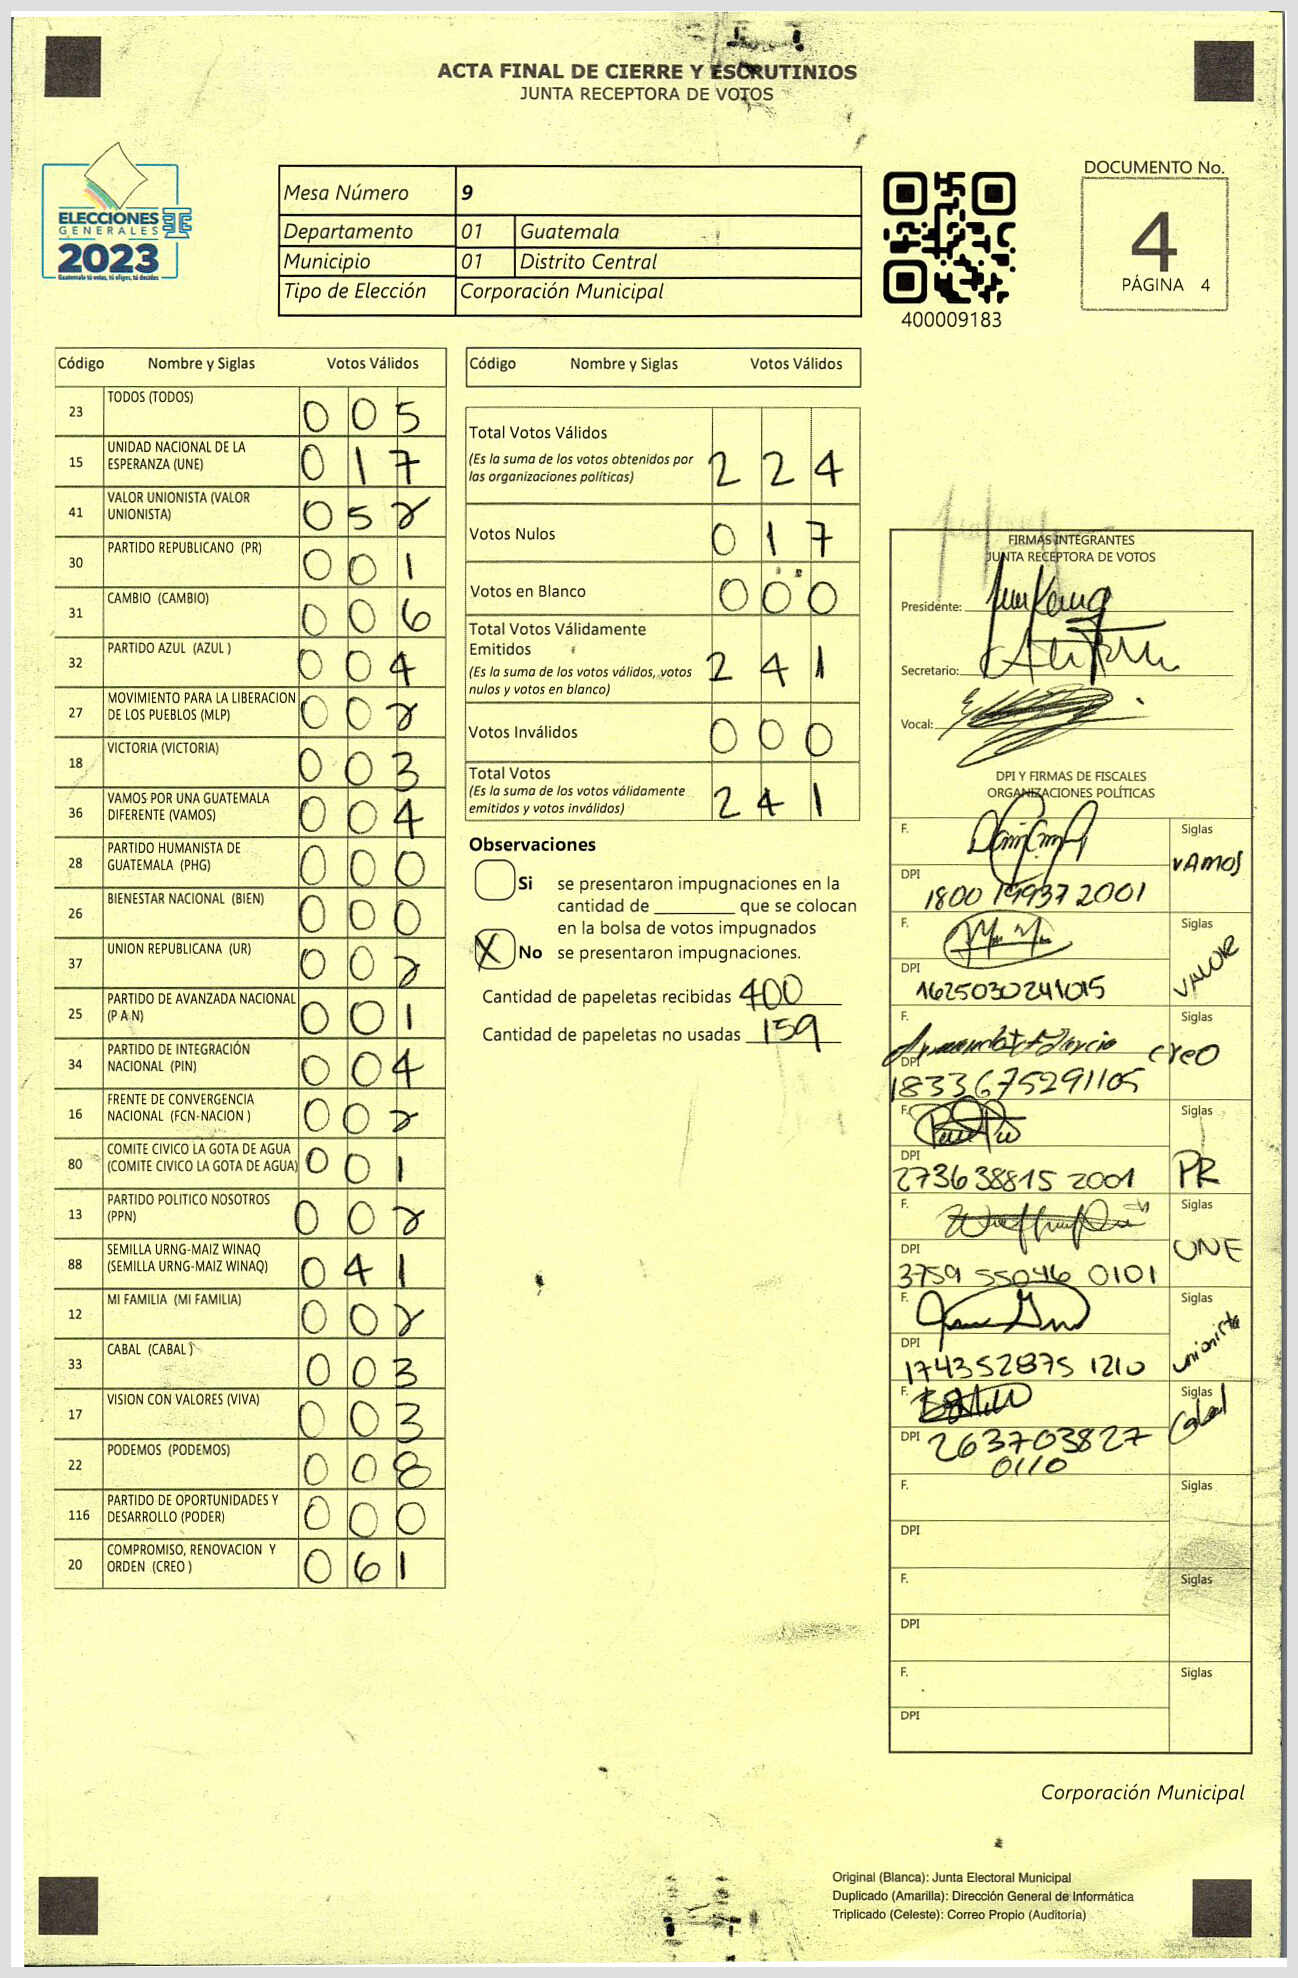 ACTA FINAL DE CIERRE Y ESCRUTINIOS
JUNTA RECEPTORA DE VOTOS
ELECCIONES
GENERALES
2023
Guatemala tú votas, tú eliges, tú decides
Mesa Número 9
Departamento 01 Guatemala
Municipio 01 Distrito Central
Tipo de Elección Corporación Municipal
400009183
DOCUMENTO No.
4
PÁGINA 4
Código Nombre y Siglas Votos Válidos
23 TODOS (TODOS) 0 0 5
15 UNIDAD NACIONAL DE LA ESPERANZA (UNE) 0 1 7
41 VALOR UNIONISTA (VALOR UNIONISTA) 0 5 2
30 PARTIDO REPUBLICANO (PR) 0 0 1
31 CAMBIO (CAMBIO) 0 0 6
32 PARTIDO AZUL (AZUL ) 0 0 4
27 MOVIMIENTO PARA LA LIBERACION DE LOS PUEBLOS (MLP) 0 0 2
18 VICTORIA (VICTORIA) 0 0 3
36 VAMOS POR UNA GUATEMALA DIFERENTE (VAMOS) 0 0 4
28 PARTIDO HUMANISTA DE GUATEMALA (PHG) 0 0 0
26 BIENESTAR NACIONAL (BIEN) 0 0 0
37 UNION REPUBLICANA (UR) 0 0 2
25 PARTIDO DE AVANZADA NACIONAL (P A N) 0 0 1
34 PARTIDO DE INTEGRACIÓN NACIONAL (PIN) 0 0 4
16 FRENTE DE CONVERGENCIA NACIONAL (FCN-NACION ) 0 0 2
80 COMITE CIVICO LA GOTA DE AGUA (COMITE CIVICO LA GOTA DE AGUA) 0 0 1
13 PARTIDO POLITICO NOSOTROS (PPN) 0 0 2
88 SEMILLA URNG-MAIZ WINAQ (SEMILLA URNG-MAIZ WINAQ) 0 4 1
12 MI FAMILIA (MI FAMILIA) 0 0 2
33 CABAL (CABAL ) 0 0 3
17 VISION CON VALORES (VIVA) 0 0 3
22 PODEMOS (PODEMOS) 0 0 8
116 PARTIDO DE OPORTUNIDADES Y DESARROLLO (PODER) 0 0 0
20 COMPROMISO, RENOVACION Y ORDEN (CREO ) 0 6 1
Código Nombre y Siglas Votos Válidos
Total Votos Válidos 2 2 4
(Es la suma de los votos obtenidos por
las organizaciones políticas)
Votos Nulos 0 1 7
Votos en Blanco 0 0 0
Total Votos Válidamente
Emitidos 2 4 1
(Es la suma de los votos válidos, votos
nulos y votos en blanco)
Votos Inválidos 0 0 0
Total Votos 2 4 1
(Es la suma de los votos válidamente
emitidos y votos inválidos)
Observaciones
Si se presentaron impugnaciones en la
cantidad de ________ que se colocan
en la bolsa de votos impugnados
X No se presentaron impugnaciones.
Cantidad de papeletas recibidas 400
Cantidad de papeletas no usadas 159
FIRMAS INTEGRANTES
JUNTA RECEPTORA DE VOTOS
Presidente:
Secretario:
Vocal:
DPI Y FIRMAS DE FISCALES
ORGANIZACIONES POLÍTICAS
F. Siglas VAMOS
DPI 1800 19937 2001
F. Siglas VALOR
DPI 1625030241015
F. Siglas creo
DPI 1833675291105
F. Siglas PR
DPI 273638815 2001
F. Siglas UNE
DPI 3759 55046 0101
F. Siglas unionista
DPI 174352875 1210
F. Siglas Cabal
DPI 263703827
0110
F. Siglas
DPI
F. Siglas
DPI
F. Siglas
DPI
Corporación Municipal
Original (Blanca): Junta Electoral Municipal
Duplicado (Amarilla): Dirección General de Informática
Triplicado (Celeste): Correo Propio (Auditoría)